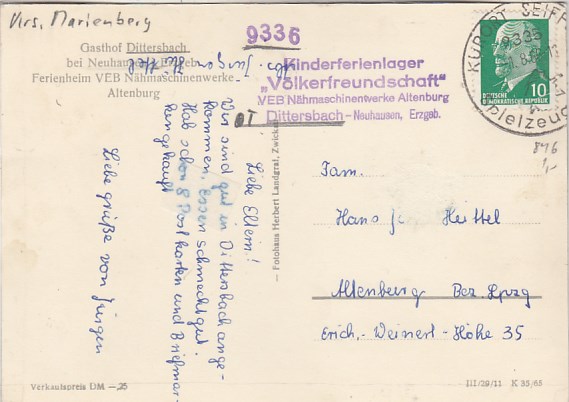 Krs. Marienberg
Gasthof Dittersbach
bei Neuhausen Erzgeb.
Ferienheim VEB Nähmaschinenwerke
Altenburg
9336
Kinderferienlager
„Völkerfreundschaft"
VEB Nähmaschinenwerke Altenburg
OT Dittersbach – Neuhausen, Erzgeb.
KURORT SEIFF
9335
DEUTSCHE
DEMOKRATISCHE REPUBLIK
10
pielzeug
846
1,-
Abs. Jürgen
Liebe Eltern!
Wir sind gut in Dittersbach ange-
kommen. Essen schmeckt gut.
Hab schon 8 Postkarten und Briefmar-
ken gekauft
Liebe grüße von Jürgen
– Fotohaus Herbert Landgraf, Zwickau
Fam.
Hans Hertel
Altenberg Bez. Lpzg
Erich-Weinert-Höhe 35
Verkaufspreis DM —.25
III/29/11 K 35/65